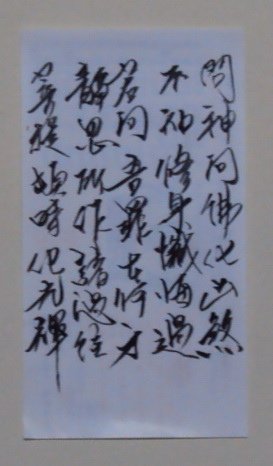 問神問佛化凶煞
不如修身懺悔過
若問吾罪在何方
靜思所作諸過往
菩提頓時化光輝